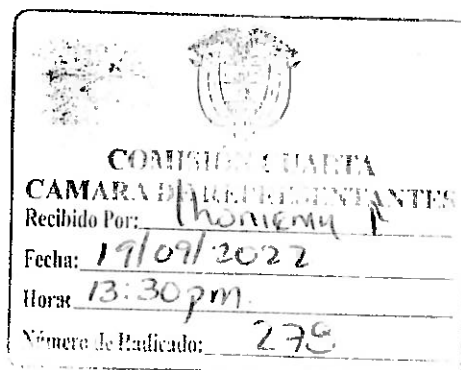 COMISIÓN CUARTA
CAMARA DE REPRESENTANTES
Recibido Por:
Fecha: 19/09/2022
Hora: 13:30pm
Número de Radicado: 278